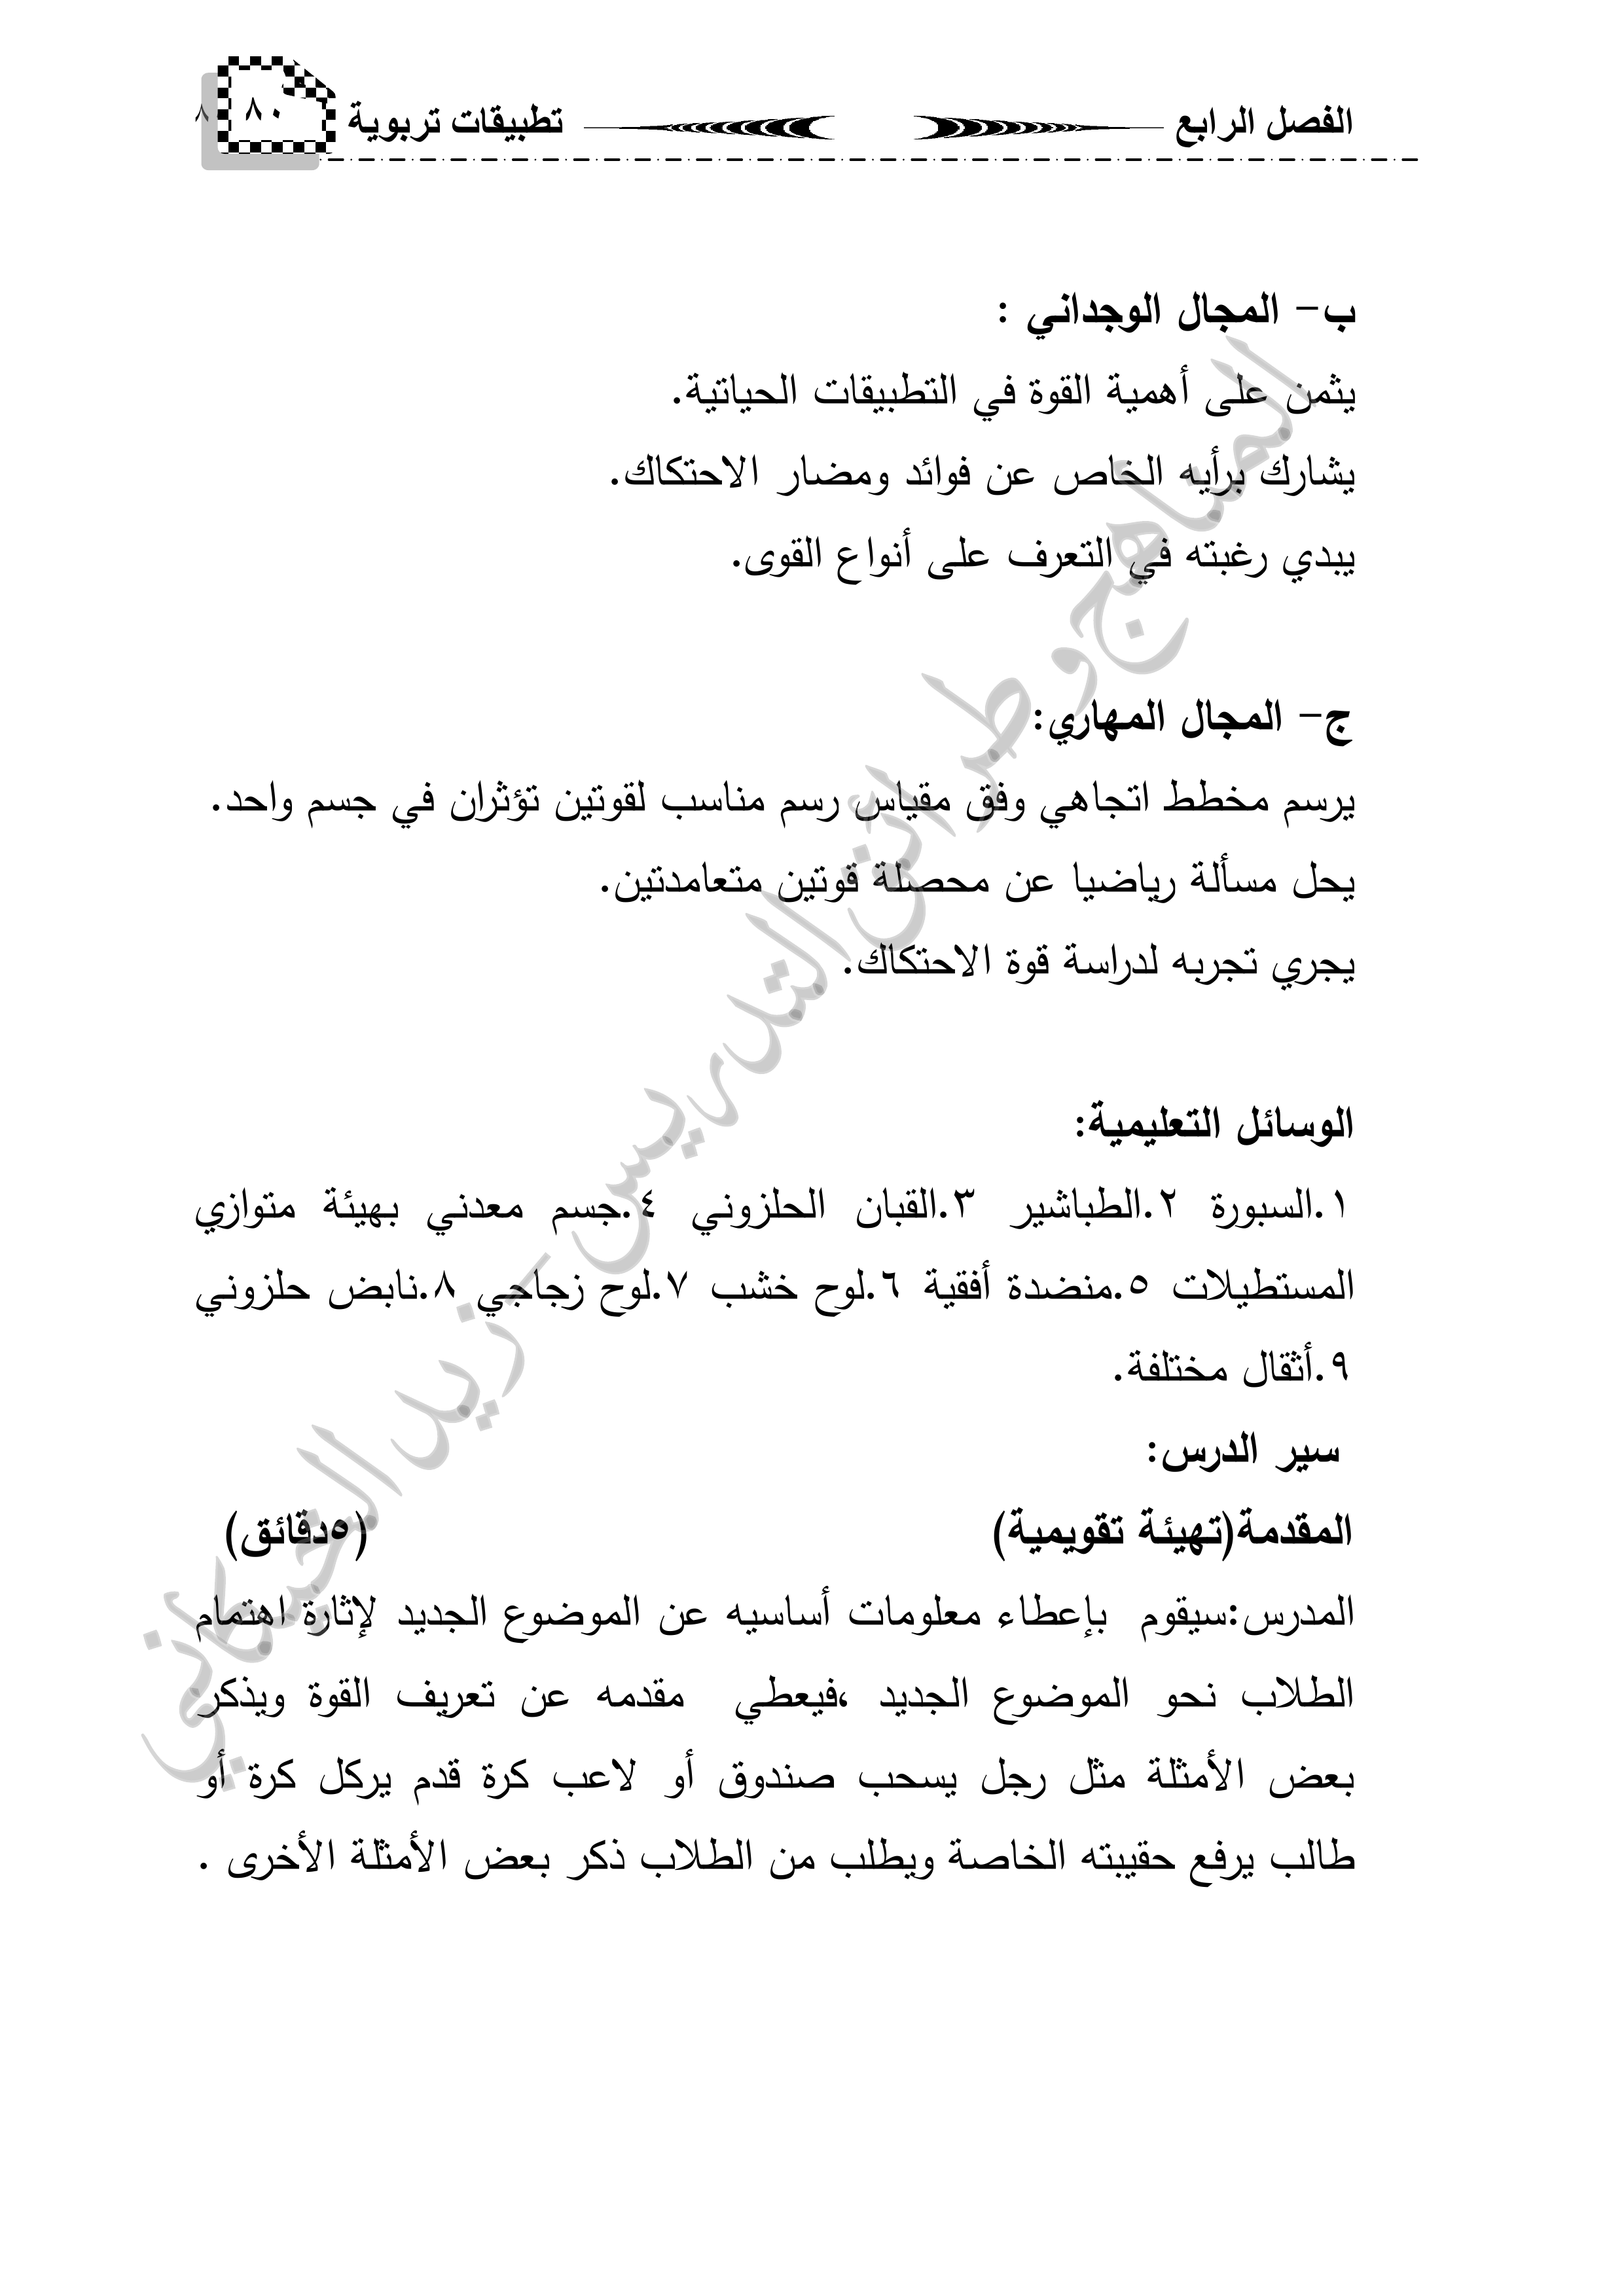 الفصل الرابع تطبيقات تربوية ٨٠
ب- المجال الوجداني :
يثمن على أهمية القوة في التطبيقات الحياتية.
يشارك برأيه الخاص عن فوائد ومضار الاحتكاك.
يبدي رغبته في التعرف على أنواع القوى.
ج- المجال المهاري:
يرسم مخطط اتجاهي وفق مقياس رسم مناسب لقوتين تؤثران في جسم واحد.
يحل مسألة رياضيا عن محصلة قوتين متعامدتين.
يجري تجربه لدراسة قوة الاحتكاك.
الوسائل التعليمية:
١.السبورة ٢.الطباشير ٣.القبان الحلزوني ٤.جسم معدني بهيئة متوازي
المستطيلات ٥.منضدة أفقية ٦.لوح خشب ٧.لوح زجاجي ٨.نابض حلزوني
٩.أثقال مختلفة.
سير الدرس:
المقدمة(تهيئة تقويمية) (٥دقائق)
المدرس:سيقوم بإعطاء معلومات أساسيه عن الموضوع الجديد لإثارة اهتمام
الطلاب نحو الموضوع الجديد ،فيعطي مقدمه عن تعريف القوة ويذكر
بعض الأمثلة مثل رجل يسحب صندوق أو لاعب كرة قدم يركل كرة أو
طالب يرفع حقيبته الخاصة ويطلب من الطلاب ذكر بعض الأمثلة الأخرى .
المناهج وطرائق التدريس - زيد الخيكاني